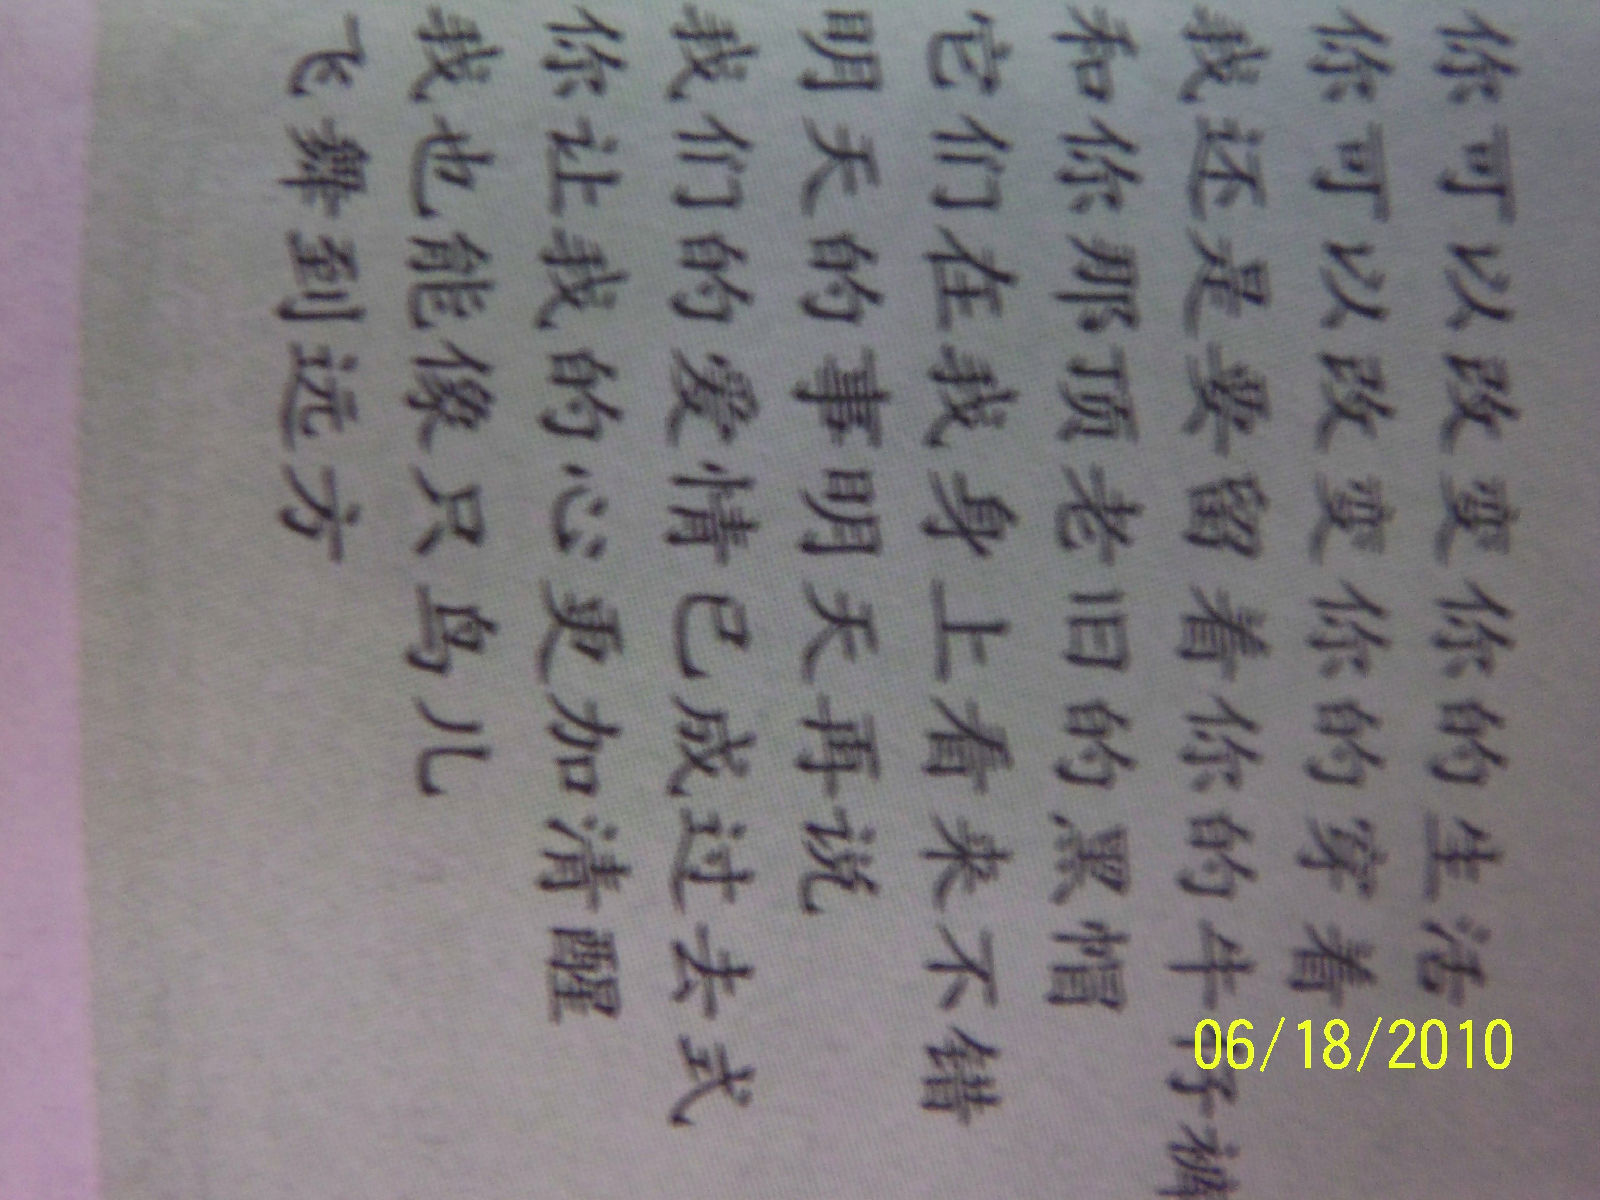 你可以改变你的生活
你可以改变你的穿着
我还是要留着你的牛仔裤
和你那顶老旧的黑帽
它们在我身上看来不错
明天的事明天再说
我们的爱情已成过去式
你让我的心更加清醒
我也能像只鸟儿
飞舞到远方
06/18/2010